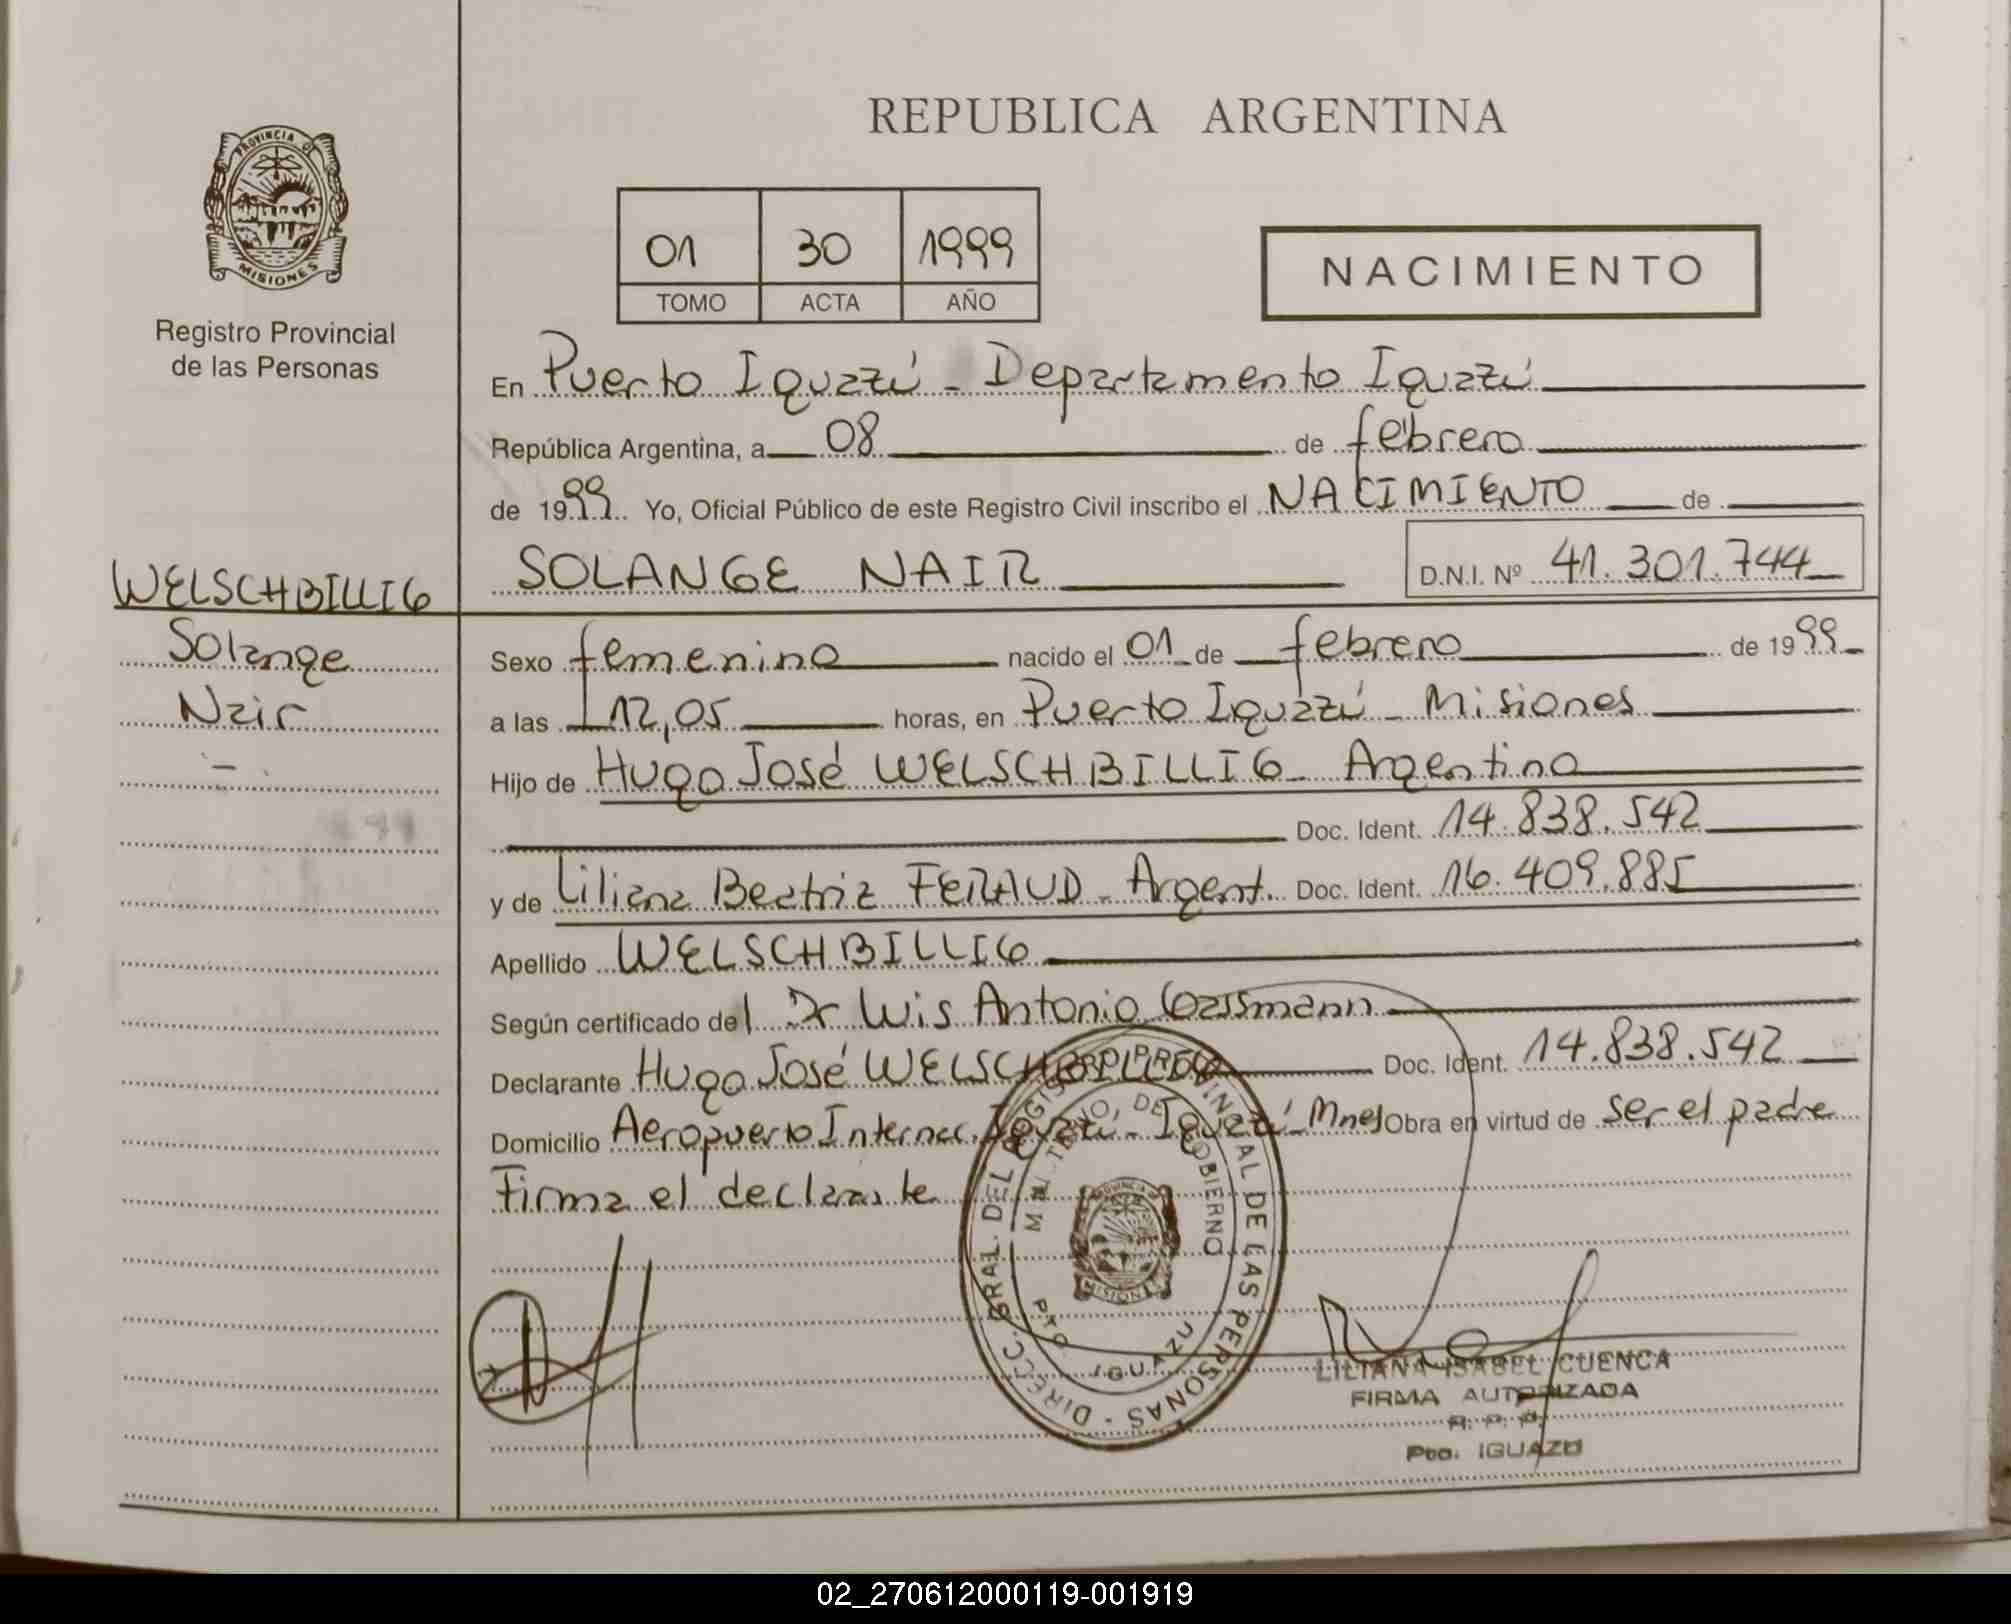 REPUBLICA ARGENTINA
PROVINCIA DE
MISIONES
Registro Provincial
de las Personas
01 30 1999
TOMO ACTA AÑO
NACIMIENTO
En Puerto Iguazú - Departamento Iguazú
República Argentina, a 08 de febrero
de 1999. Yo, Oficial Público de este Registro Civil inscribo el NACIMIENTO de
SOLANGE NAIR D.N.I. Nº 41.301.744
WELSCHBILLIG
Solange
Nair
Sexo femenino nacido el 01 de febrero de 1999
a las 12,05 horas, en Puerto Iguazú - Misiones
Hijo de Hugo José WELSCHBILLIG - Argentino
Doc. Ident. 14.838.542
y de Liliana Beatriz FERAUD - Argent. Doc. Ident. 16.409.885
Apellido WELSCHBILLIG
Según certificado del Dr Luis Antonio Gassmann
Declarante Hugo José WELSCHBILLIG Doc. Ident. 14.838.542
Domicilio Aeropuerto Internac. Iguazú - Iguazú - Mnes Obra en virtud de ser el padre
Firma el declarante
DIRECC. GRAL. DEL REGIST. PROVINCIAL DE LAS PERSONAS
DE GOBIERNO
PTO. IGUAZU
MISIONES
LILIANA ISABEL CUENCA
FIRMA AUTORIZADA
R. P. P.
Pto. IGUAZU
02_270612000119-001919